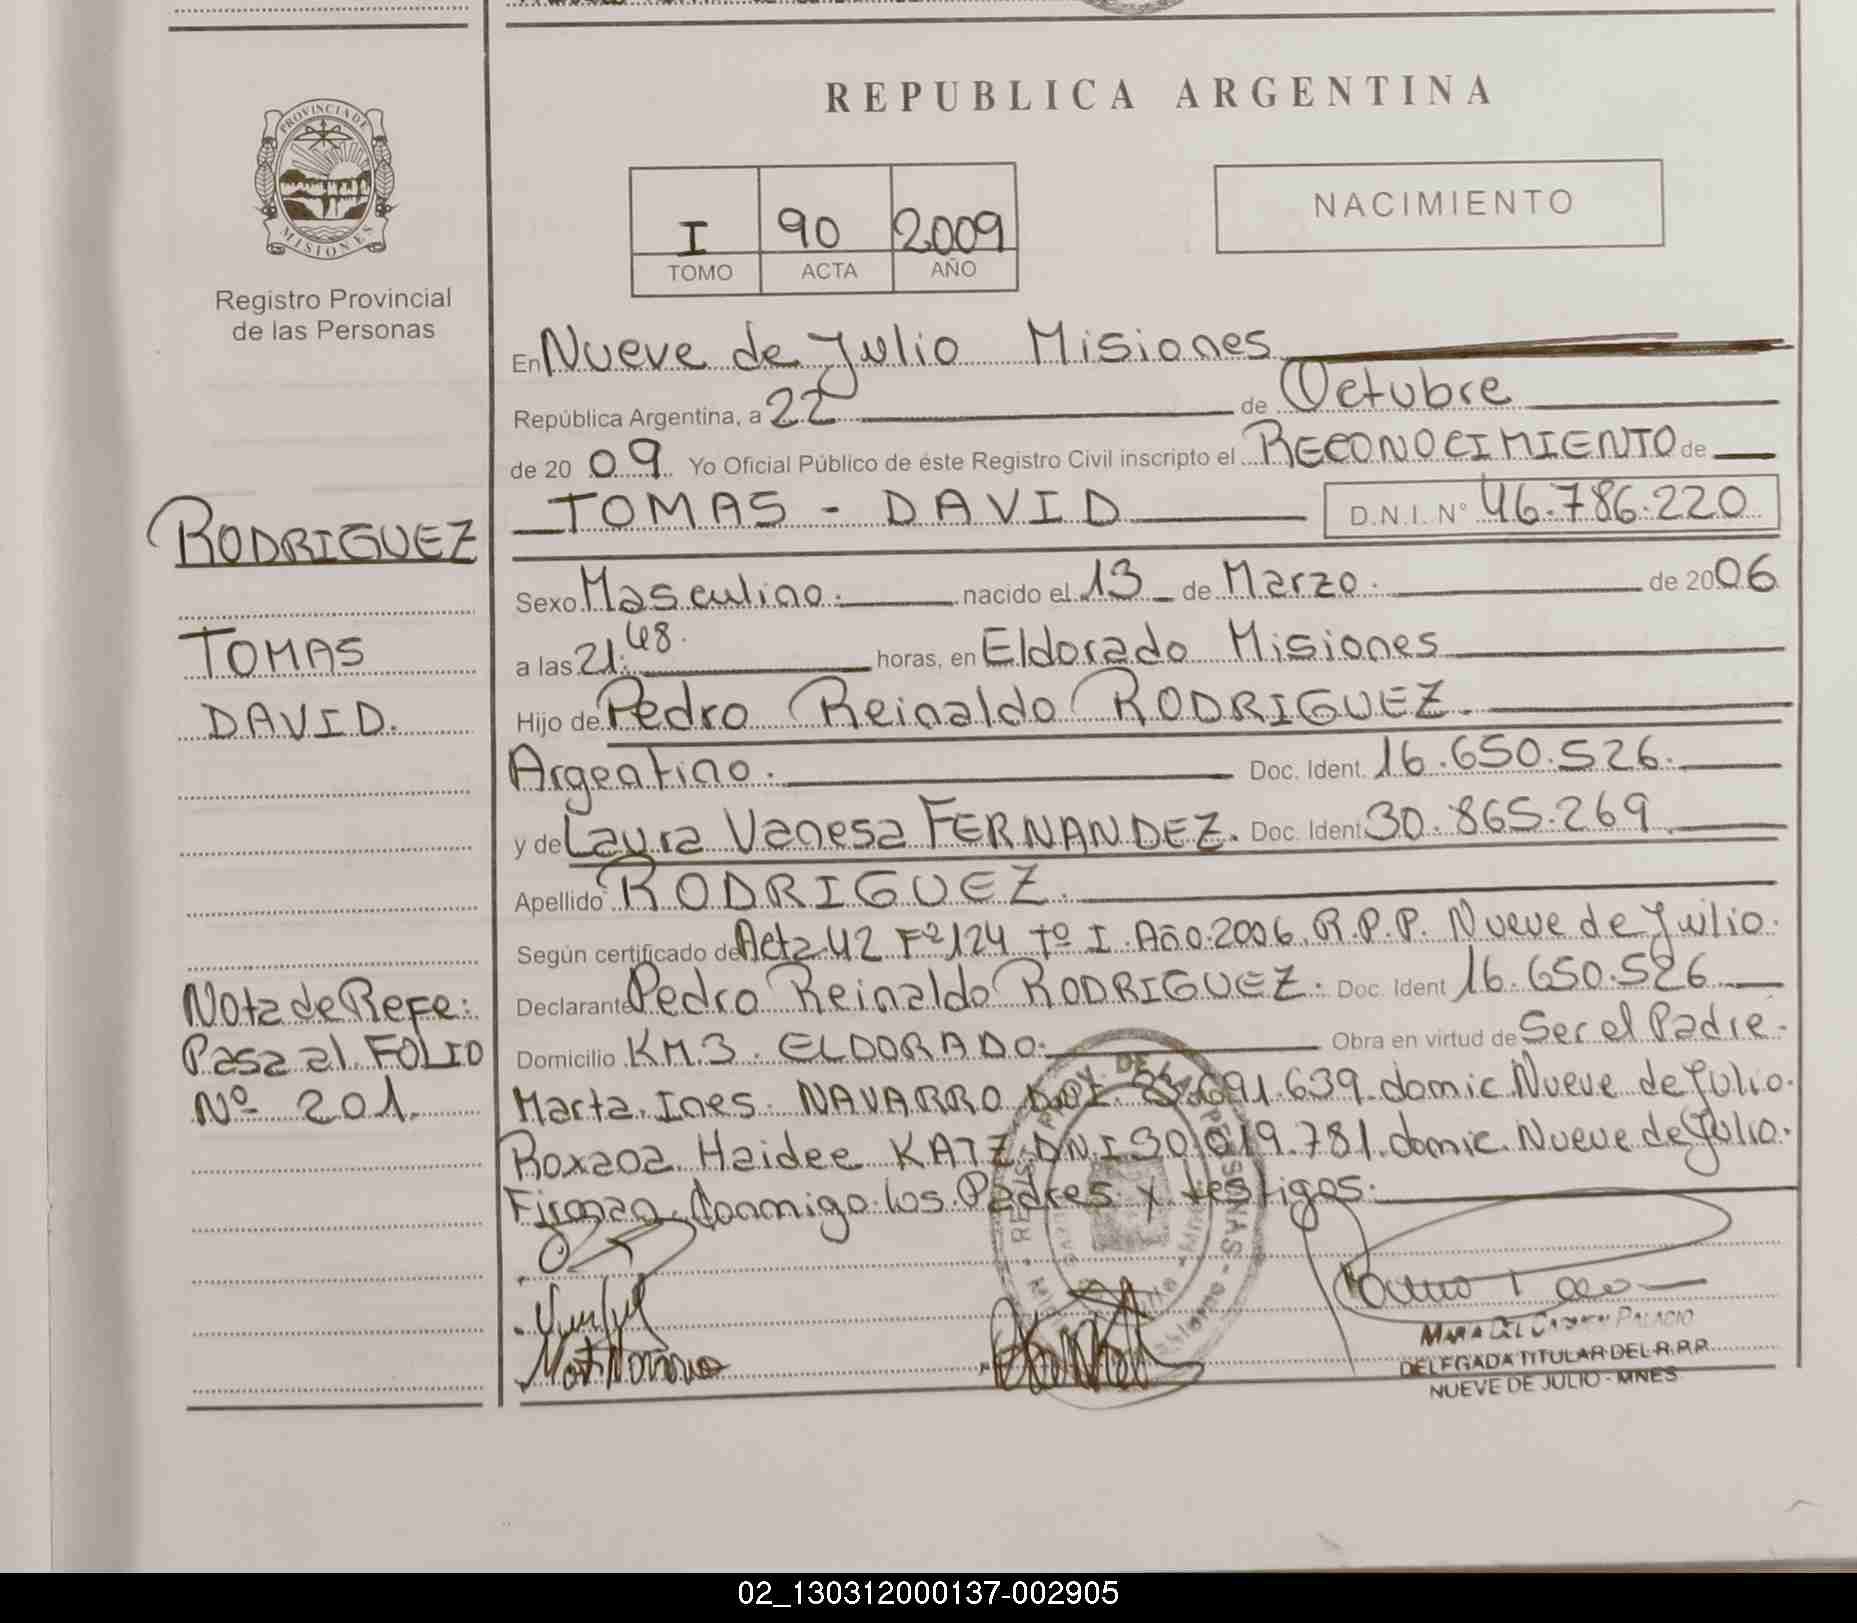 PROVINCIA DE
MISIONES
Registro Provincial
de las Personas
REPUBLICA ARGENTINA
I 90 2009
TOMO ACTA AÑO
NACIMIENTO
En Nueve de Julio Misiones
República Argentina, a 22 de Octubre
de 2009 Yo Oficial Público de éste Registro Civil inscripto el RECONOCIMIENTO de
TOMAS - DAVID D.N.I. Nº 46.786.220
Sexo Masculino. nacido el 13 de Marzo. de 2006
a las 21:48. horas, en Eldorado Misiones
Hijo de Pedro Reinaldo RODRIGUEZ.
Argentino. Doc. Ident. 16.650.526.
y de Laura Vanesa FERNANDEZ. Doc. Ident. 30.865.269
Apellido RODRIGUEZ.
Según certificado de Acta 42 Fº 124 Tº I. Año 2006. R.P.P. Nueve de Juilio.
Declarante Pedro Reinaldo RODRIGUEZ. Doc. Ident 16.650.526
Domicilio KM.3. ELDORADO. Obra en virtud de Ser el Padre.
Marta Ines NAVARRO .691.639. domic Nueve de Julio.
Roxana Haidee KATZ DNI 30.019.781. domic. Nueve de Julio.
Firman Conmigo los Padres y testigos.
MARIA DEL CARMEN PALACIO
DELEGADA TITULAR DEL R.P.P.
NUEVE DE JULIO - MNES
RODRIGUEZ
TOMAS
DAVID.
Nota de Refe:
Pasa al FOLIO
Nº 201.
02_130312000137-002905